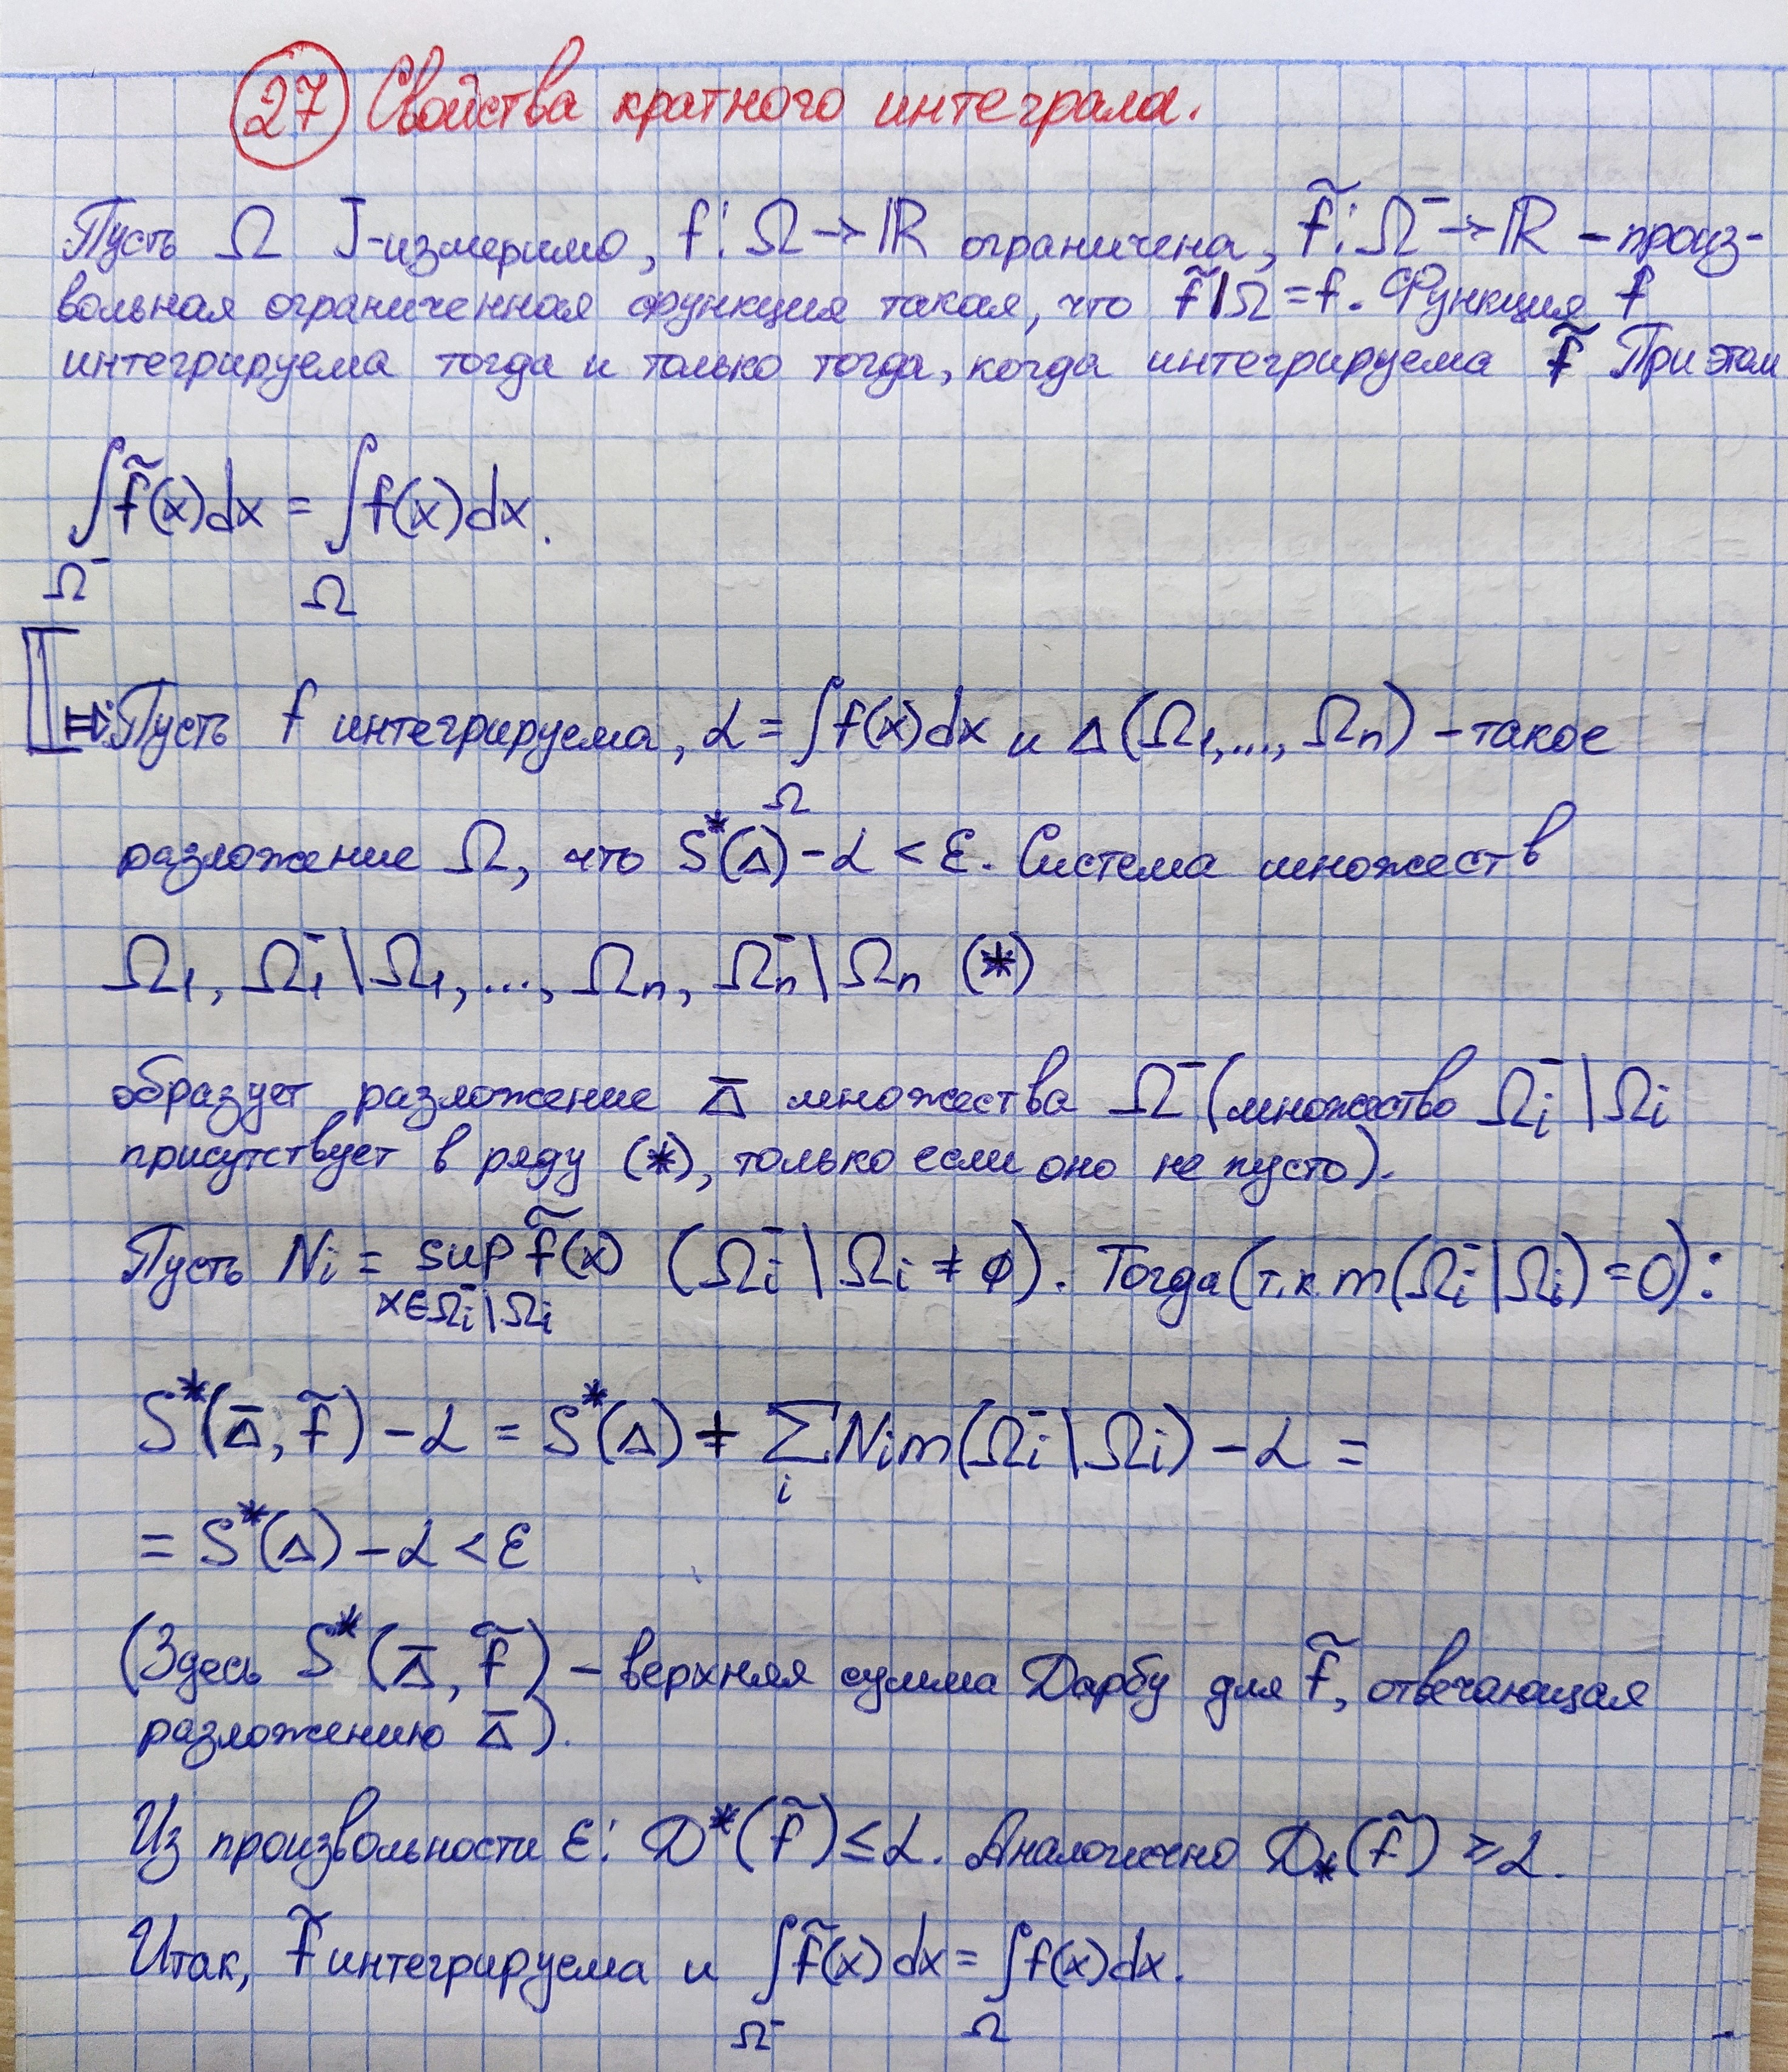 27 Свойства кратного интеграла.
Пусть Ω J-измеримо, f: Ω → ℝ ограничена, f̃: Ω⁻ → ℝ – произ-
вольная ограниченная функция такая, что f̃|Ω = f. Функция f
интегрируема тогда и только тогда, когда интегрируема f̃ При этом
∫f̃(x)dx = ∫f(x)dx.
Ω⁻ Ω
⇒: Пусть f интегрируема, α = ∫f(x)dx и Δ(Ω₁,..., Ωₙ) – такое
Ω
разложение Ω, что S*(Δ) – α < ε. Система множеств
Ω₁, Ω₁⁻\Ω₁,..., Ωₙ, Ωₙ⁻\Ωₙ (*)
образует разложение Δ̅ множества Ω⁻ (множество Ωᵢ⁻\Ωᵢ
присутствует в ряду (*), только если оно не пусто).
Пусть Nᵢ = sup f̃(x) (Ωᵢ⁻\Ωᵢ ≠ ∅). Тогда (т.к. m(Ωᵢ⁻\Ωᵢ) = 0):
x∈Ωᵢ⁻\Ωᵢ
S*(Δ̅, f̃) – α = S*(Δ) + ∑Nᵢm(Ωᵢ⁻\Ωᵢ) – α =
i
= S*(Δ) – α < ε
(Здесь S*(Δ̅, f̃) – верхняя сумма Дарбу для f̃, отвечающая
разложению Δ̅).
Из произвольности ε: D*(f̃) ≤ α. Аналогично D⁎(f̃) ≥ α.
Итак, f̃ интегрируема и ∫f̃(x)dx = ∫f(x)dx.
Ω⁻ Ω